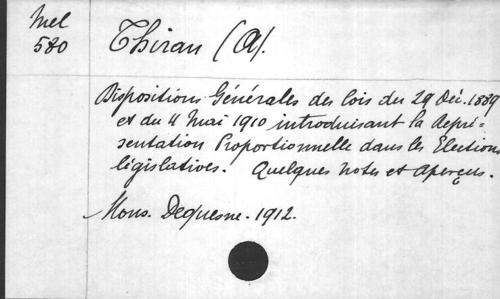 Mel
580
Thiran (A).
Dispositions Générales des lois du 29 Déc. 1889
et du 4 Mai 1910 introduisant la Repré-
sentation Proportionnelle dans les Elections
législatives. Quelques notes et Aperçus.
Mons. Dequesne. 1912.